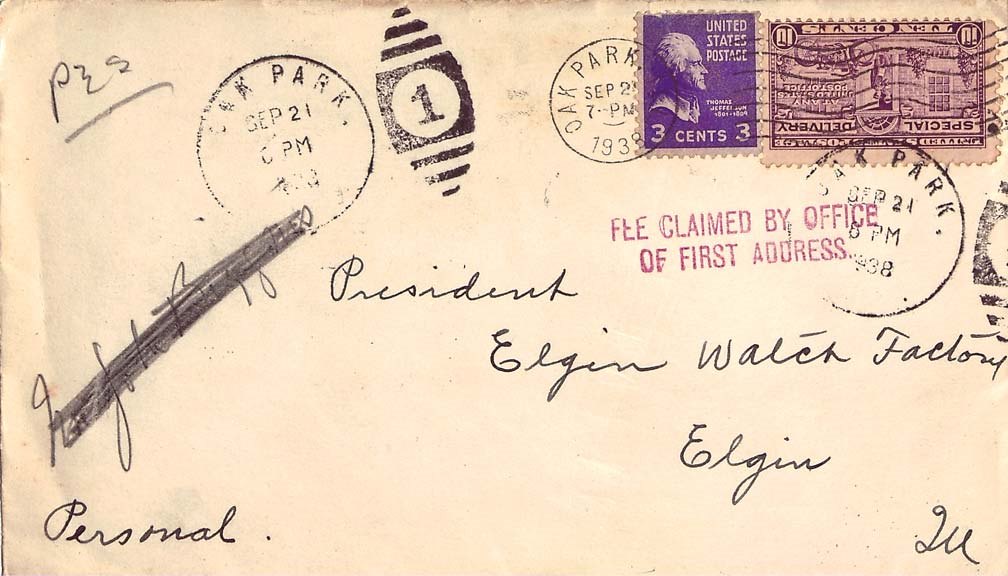 OAK PARK.
SEP 21
6 PM
1
OAK PARK
SEP 21
7-PM
1938
UNITED
STATES
POSTAGE
THOMAS
JEFFERSON
1801-1809
3 CENTS 3
10 TEN CENTS 10
AT ANY
UNITED STATES
POST OFFICE
SPECIAL DELIVERY
OAK PARK.
SEP 21
6 PM
1938
FEE CLAIMED BY OFFICE
OF FIRST ADDRESS.
President
Elgin Watch Factory
Elgin
Ill
Personal.